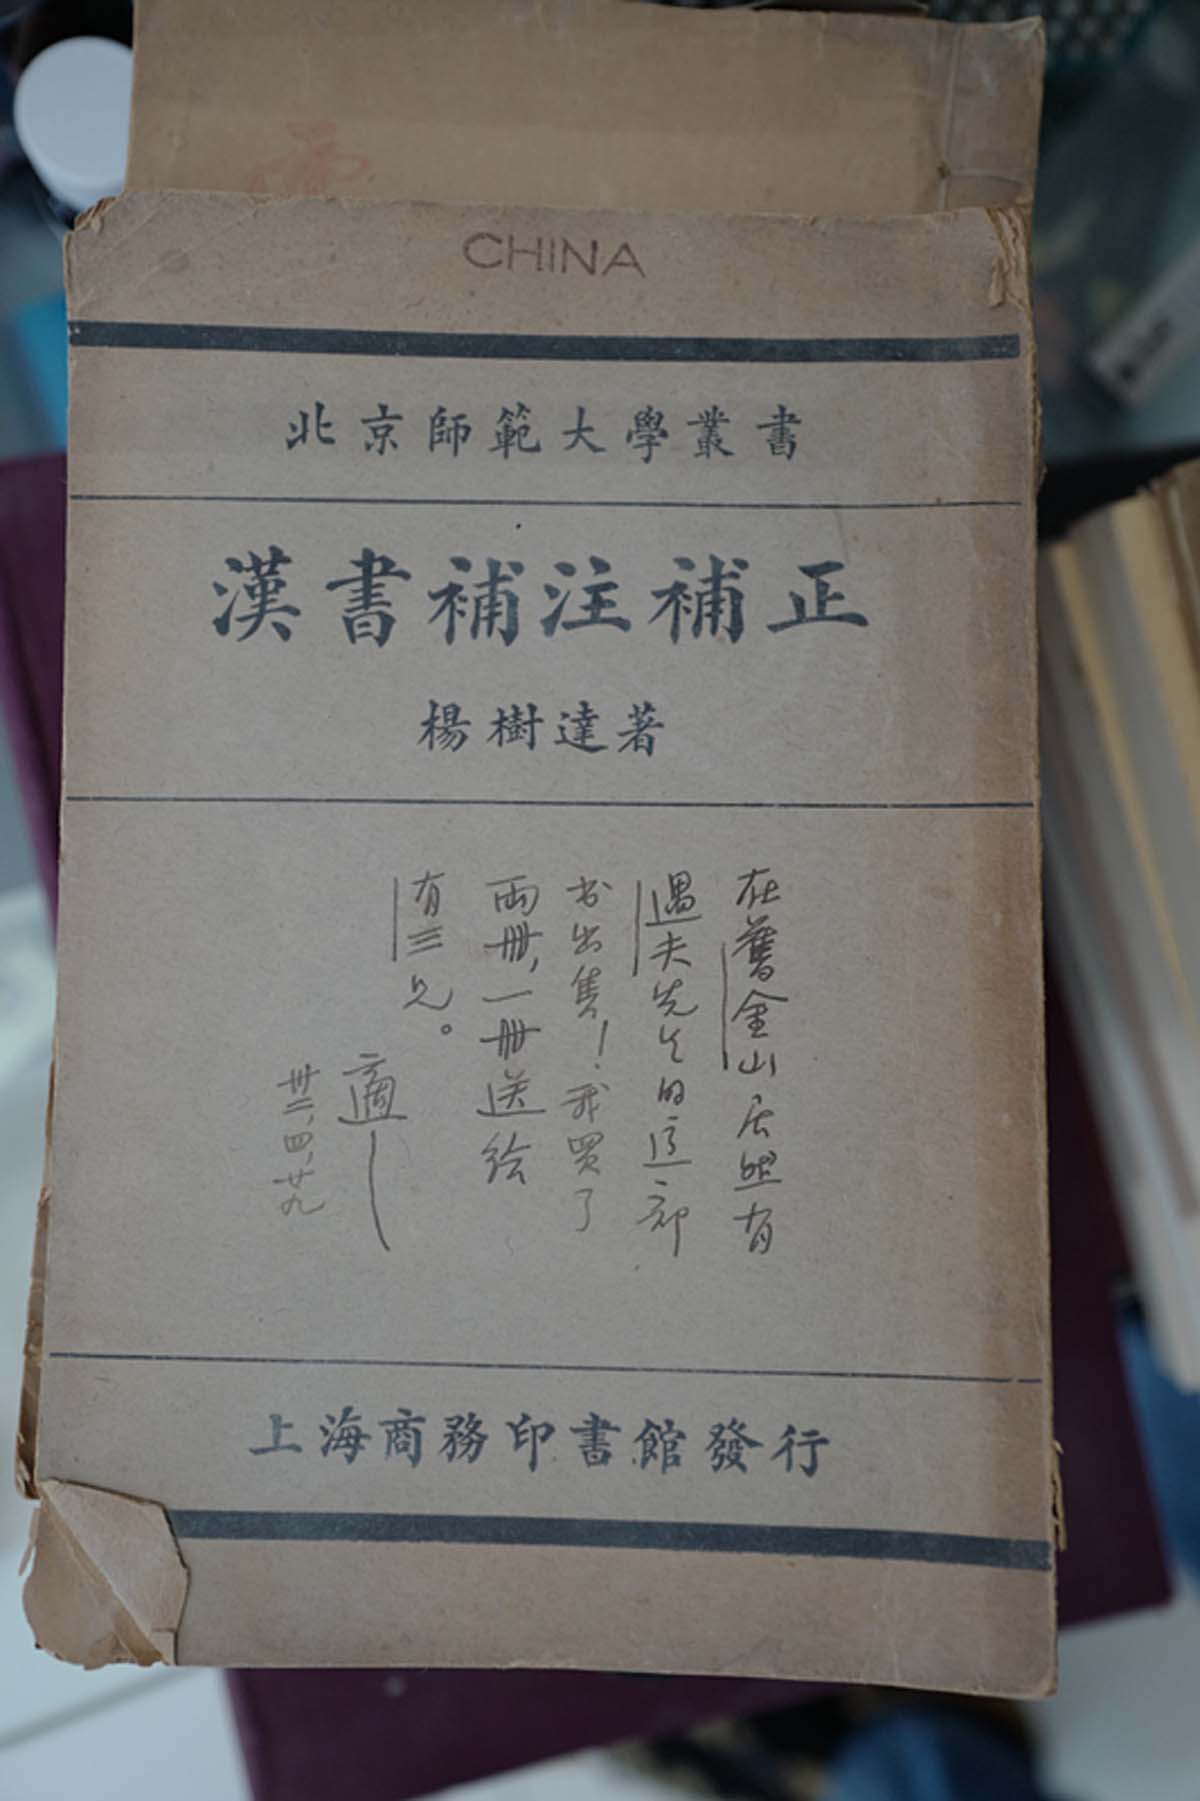 CHINA
北京師範大學叢書
漢書補注補正
楊樹達著
在舊金山居然有
遇夫先生的這部
书出售！我買了
兩冊，一冊送给
有三兄。
適
卅二，四，廿九
上海商務印書館發行